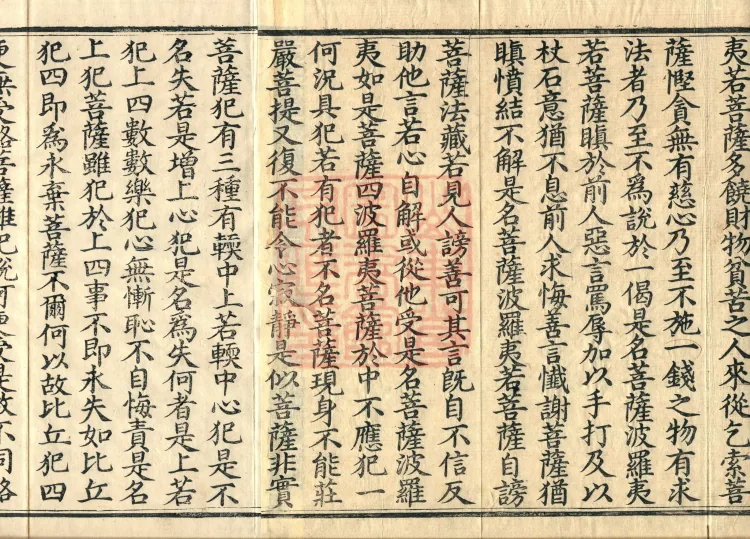 夷若菩薩多饒財物貧苦之人來從乞索菩
薩慳貪無有慈心乃至不施一錢之物有求
法者乃至不爲說於一偈是名菩薩波羅夷
若菩薩瞋於前人惡言罵辱加以手打及以
杖石意猶不息前人求悔善言懺謝菩薩猶
瞋憤結不解是名菩薩波羅夷若菩薩自謗
菩薩法藏若見人謗善可其言旣自不信反
助他言若心自解或從他受是名菩薩波羅
夷如是菩薩四波羅夷菩薩於中不應犯一
何況具犯若有犯者不名菩薩現身不能莊
嚴菩提又復不能令心寂靜是似菩薩非實
菩薩犯有三種有輭中上若輭中心犯是不
名失若是增上心犯是名爲失何者是上若
犯上四數數樂犯心無慚恥不自悔責是名
上犯菩薩雖犯於上四事不即永失如比丘
犯四即爲永棄菩薩不爾何以故比丘犯四
更無受路菩薩雖犯說可更受是故不同略